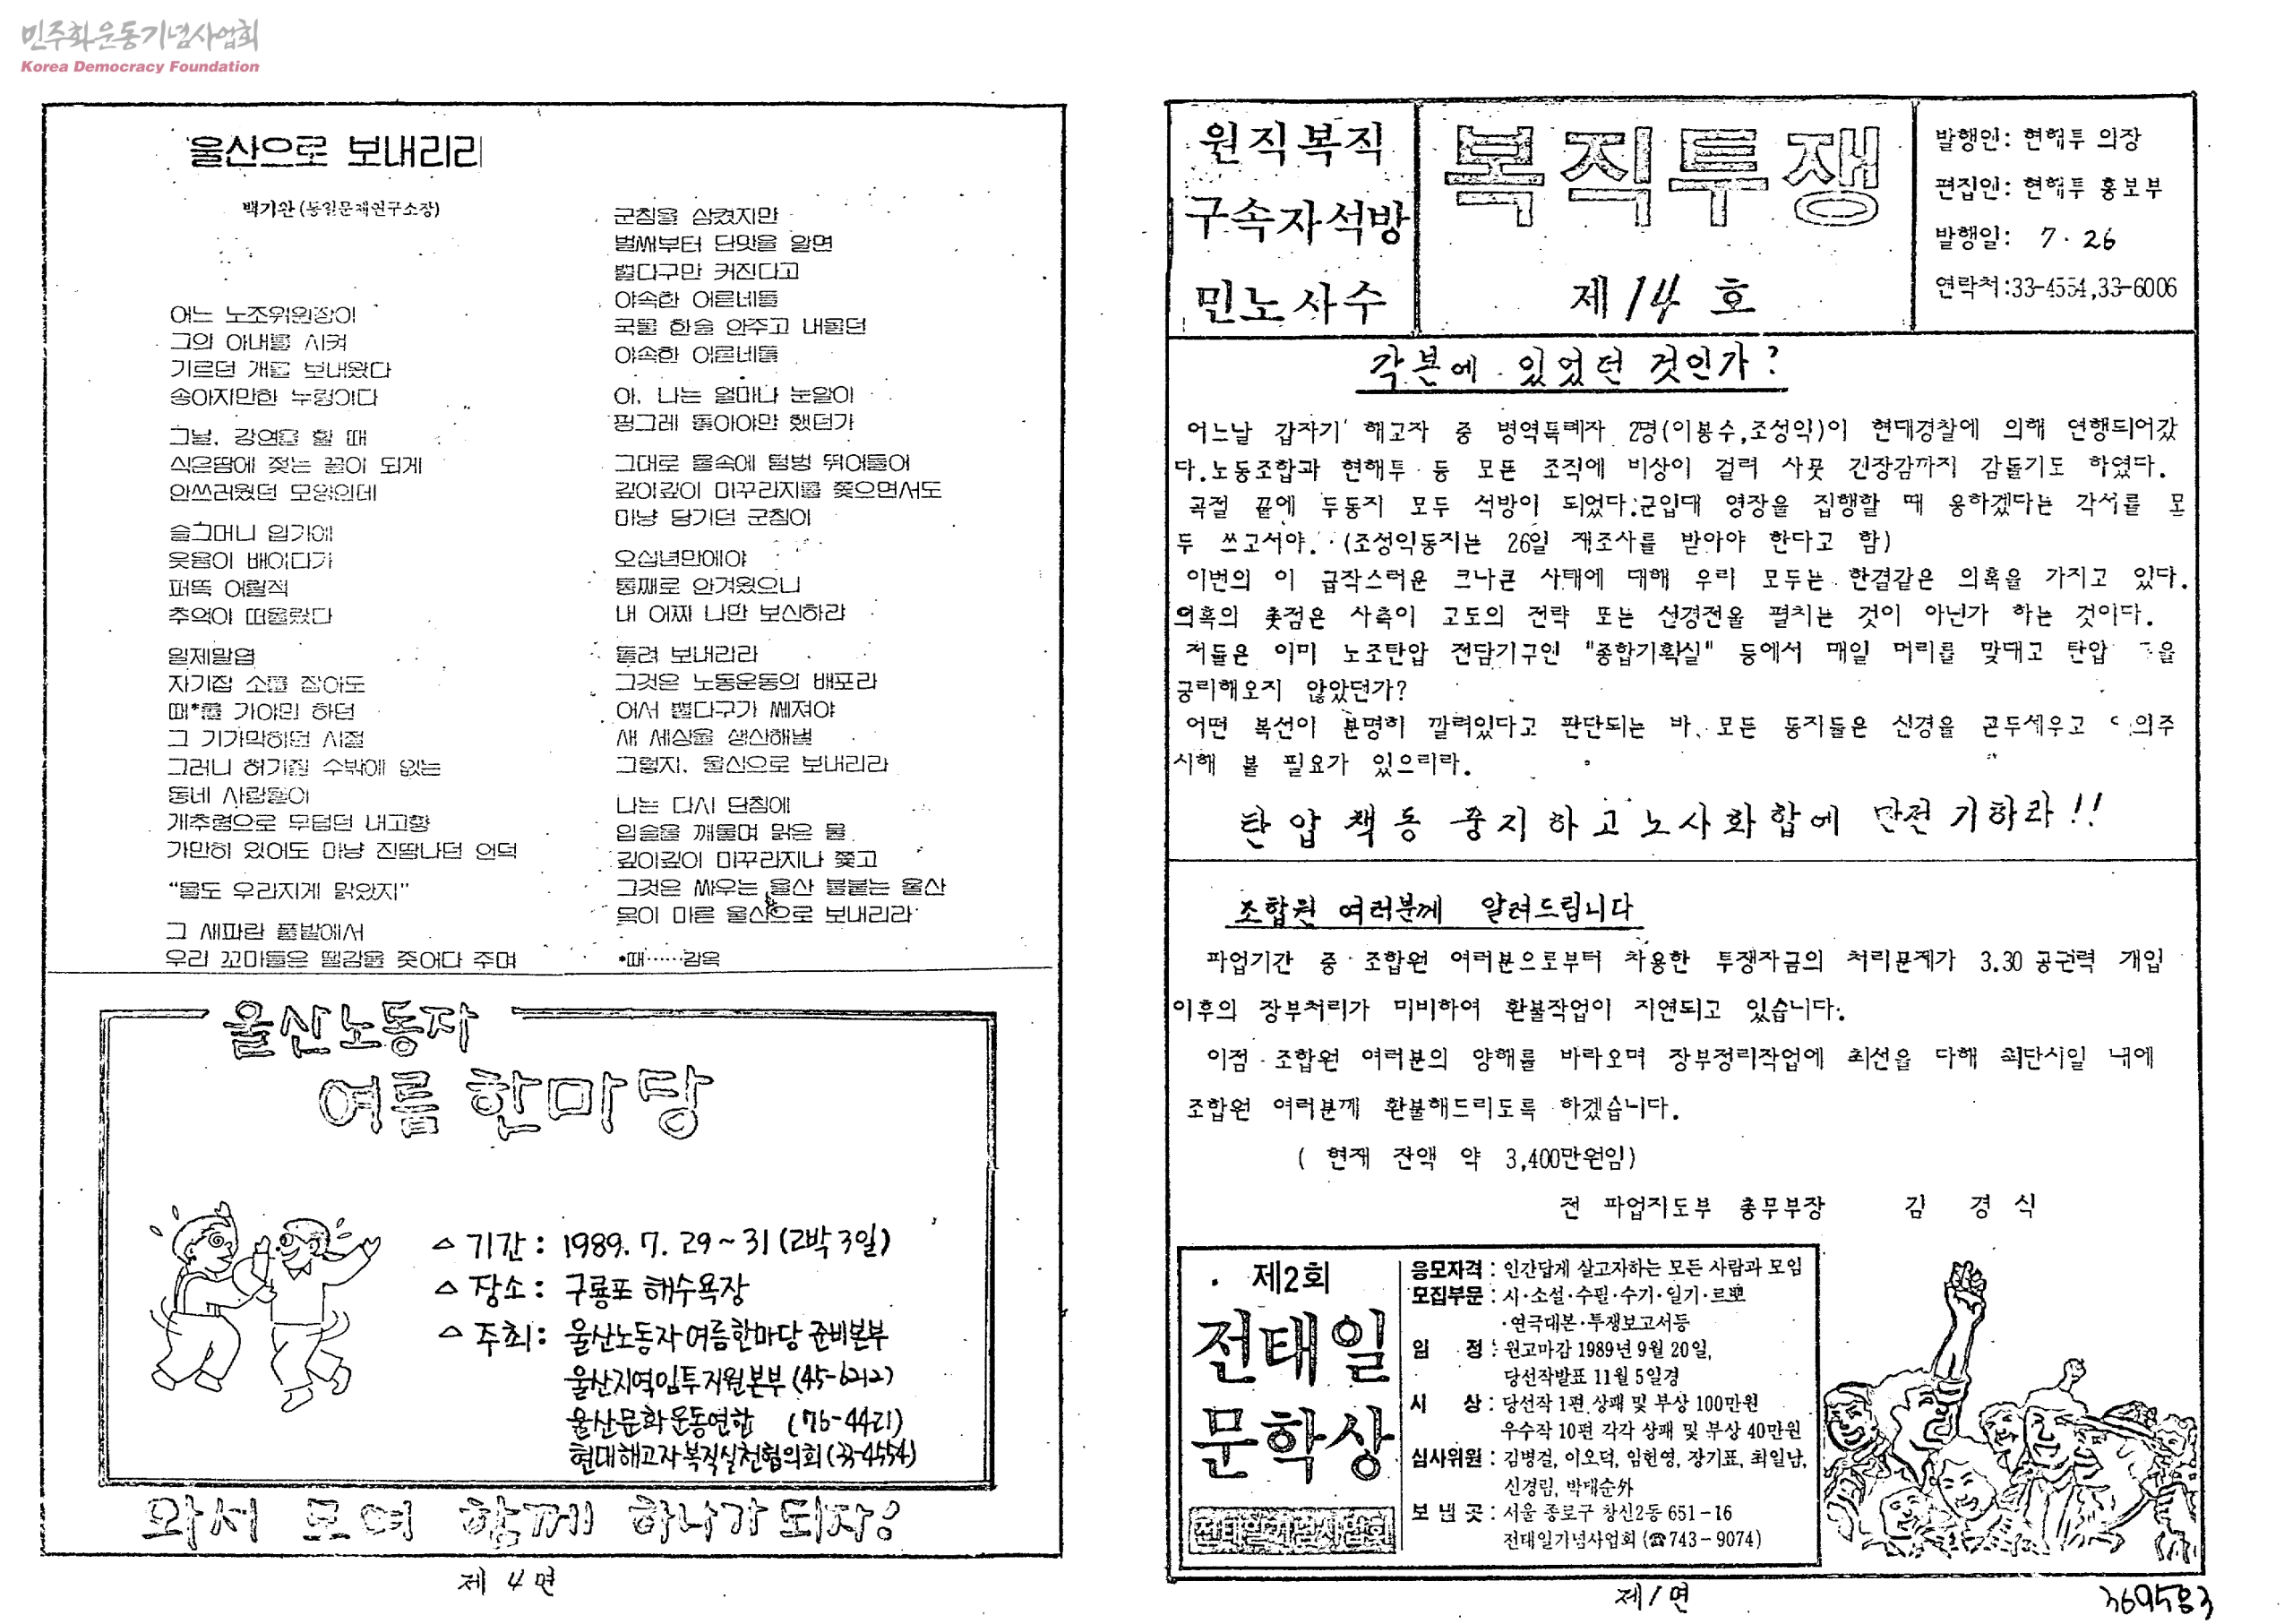 민주화운동기념사업회
Korea Democracy Foundation
울산으로 보내리라
백기완 (통일문제연구소장)
어느 노조위원장이
그의 아내를 시켜
기르던 개를 보내왔다
송아지만한 누렁이다
그날, 강연을 할 때
식은땀에 젖는 꼴이 되게
안쓰러웠던 모양인데
슬그머니 입가에
웃음이 배이다가
퍼뜩 어릴적
추억이 떠올랐다
일제말엽
자기집 소를 잡아도
때*를 가야만 하던
그 기가막히던 시절
그러니 허기질 수밖에 없는
동네 사람들이
개추렴으로 무덥던 내고향
가만히 있어도 마냥 진땀나던 언덕
“물도 우라지게 맑았지”
그 새파란 풀밭에서
우리 꼬마들은 땔감을 줏어다 주며
군침을 삼켰지만
벌써부터 단맛을 알면
뼐다구만 커진다고
야속한 어른네들
국물 한술 안주고 내몰던
야속한 어른네들
아, 나는 얼마나 눈알이
핑그레 돌아야만 했던가
그대로 물속에 텀벙 뛰어들어
깊이깊이 미꾸라지를 쫓으면서도
마냥 당기던 군침이
오십년만에야
통째로 안겨왔으니
내 어찌 나만 보신하랴
돌려 보내리라
그것은 노동운동의 배포라
어서 뼐다구가 쎄져야
새 세상을 생산해낼
그렇지, 울산으로 보내리라
나는 다시 단침에
입술을 깨물며 맑은 물
깊이깊이 미꾸라지나 쫓고
그것은 싸우는 울산 불붙는 울산
목이 마른 울산으로 보내리라
*때……감옥
울산노동자
여름 한마당
△ 기간 : 1989. 7. 29 ~ 31 (2박 3일)
△ 장소 : 구룡포 해수욕장
△ 주최 : 울산노동자여름한마당 준비본부
울산지역임투지원본부 (45-6212)
울산문화운동연합 (76-4421)
현대해고자복직실천협의회 (33-4554)
와서 모여 함께 하나가 되자!
제 4 면
원직복직
구속자석방
민노사수
복직투쟁
제 14 호
발행인: 현해투 의장
편집인: 현해투 홍보부
발행일: 7. 26
연락처:33-4554,33-6006
각본에 있었던 것인가?
어느날 갑자기 해고자 중 병역특례자 2명(이봉수,조성익)이 현대경찰에 의해 연행되어갔
다.노동조합과 현해투 등 모든 조직에 비상이 걸려 사뭇 긴장감까지 감돌기도 하였다.
곡절 끝에 두동지 모두 석방이 되었다.군입대 영장을 집행할 때 응하겠다는 각서를 모
두 쓰고서야. (조성익동지는 26일 재조사를 받아야 한다고 함)
이번의 이 급작스러운 크나큰 사태에 대해 우리 모두는 한결같은 의혹을 가지고 있다.
의혹의 촛점은 사측이 고도의 전략 또는 신경전을 펼치는 것이 아닌가 하는 것이다.
저들은 이미 노조탄압 전담기구인 "종합기획실" 등에서 매일 머리를 맞대고 탄압 을
궁리해오지 않았던가?
어떤 복선이 분명히 깔려있다고 판단되는 바, 모든 동지들은 신경을 곤두세우고 의주
시해 볼 필요가 있으리라.
탄압책동 중지하고 노사화합에 만전 기하라!!
조합원 여러분께 알려드립니다
파업기간 중 조합원 여러분으로부터 차용한 투쟁자금의 처리문제가 3.30 공권력 개입
이후의 장부처리가 미비하여 환불작업이 지연되고 있습니다.
이점 조합원 여러분의 양해를 바라오며 장부정리작업에 최선을 다해 최단시일 내에
조합원 여러분께 환불해드리도록 하겠습니다.
( 현재 잔액 약 3,400만원임)
전 파업지도부 총무부장 김 경 식
제2회
전태일
문학상
전태일기념사업회
응모자격 : 인간답게 살고자하는 모든 사람과 모임
모집부문 : 시·소설·수필·수기·일기·르뽀
·연극대본·투쟁보고서등
일 정 : 원고마감 1989년 9월 20일,
당선작발표 11월 5일경
시 상 : 당선작 1편 상패 및 부상 100만원
우수작 10편 각각 상패 및 부상 40만원
심사위원 : 김병걸, 이오덕, 임헌영, 장기표, 최일남,
신경림, 박태순外
보낼곳 : 서울 종로구 창신2동 651-16
전태일기념사업회 (☎743-9074)
제 1 면
369583